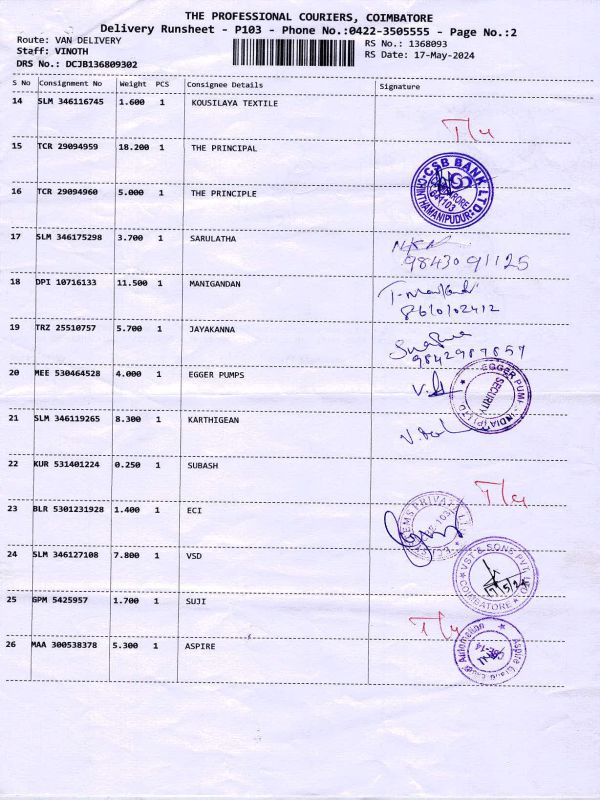 THE PROFESSIONAL COURIERS, COIMBATORE
Delivery Runsheet - P103 - Phone No.:0422-3505555 - Page No.:2
Route: VAN DELIVERY
Staff: VINOTH
DRS No.: DCJB136809302
RS No.: 1368093
RS Date: 17-May-2024
S No Consignment No Weight PCS Consignee Details Signature
14 SLM 346116745 1.600 1 KOUSILAYA TEXTILE
15 TCR 29094959 18.200 1 THE PRINCIPAL
CSB BANK LTD
641103
CHINTHAMANIPUDUR
16 TCR 29094960 5.000 1 THE PRINCIPLE
17 SLM 346175298 3.700 1 SARULATHA
9843091125
18 DPI 10716133 11.500 1 MANIGANDAN
8610102412
19 TRZ 25510757 5.700 1 JAYAKANNA
9842987857
20 MEE 530464528 4.000 1 EGGER PUMPS
EGGER PUMPS INDIA (P) LTD
SECURITY
21 SLM 346119265 8.300 1 KARTHIGEAN
22 KUR 531401224 0.250 1 SUBASH
23 BLR 5301231928 1.400 1 ECI
24 SLM 346127108 7.800 1 VSD
VST & SONS PVT LTD
COIMBATORE
17/5/24
25 GPM 5425957 1.700 1 SUJI
26 MAA 300538378 5.300 1 ASPIRE
Aspire
Automation